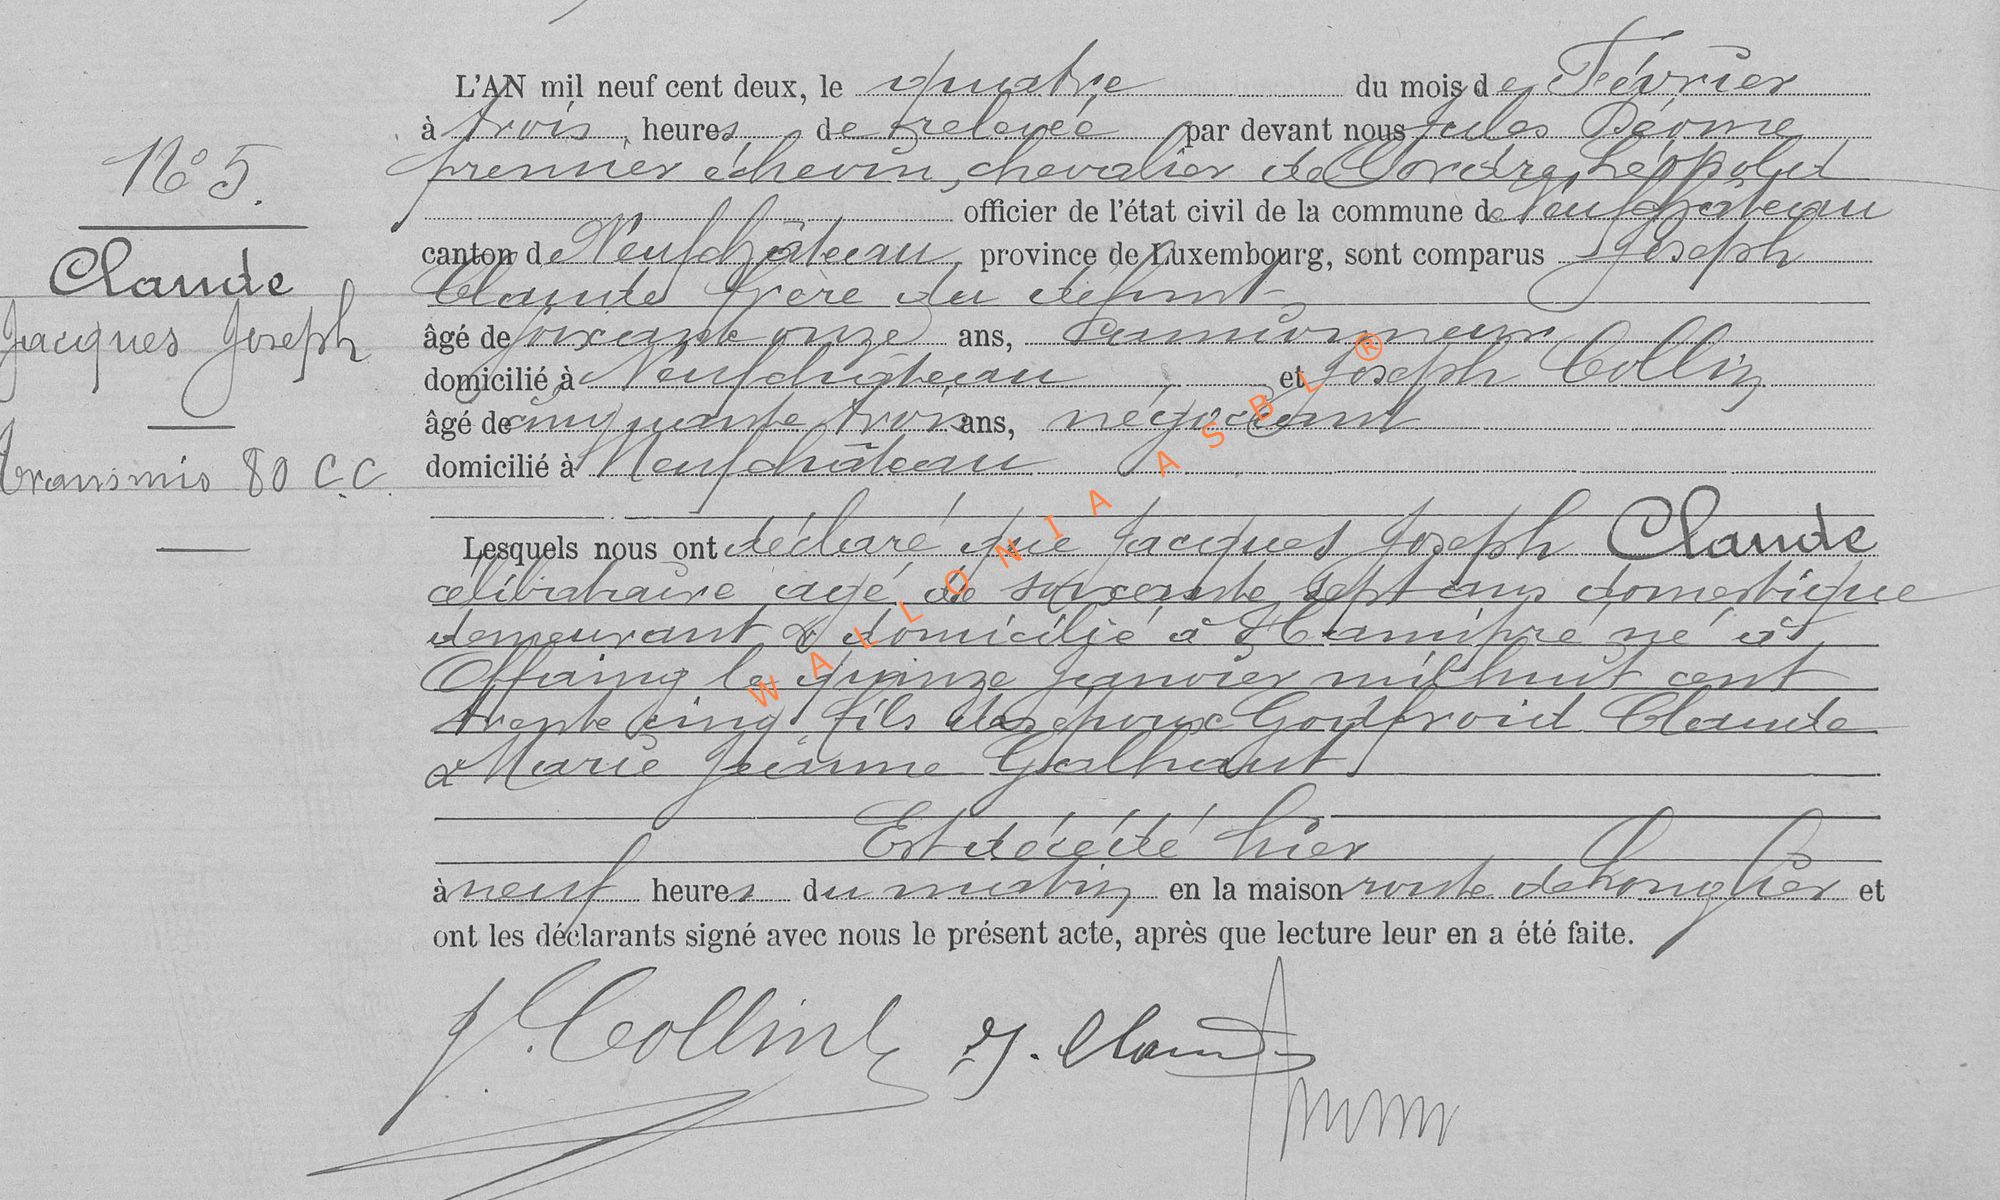 N° 5.
Claude
Jacques Joseph
transmis 80 C.C.
L'AN mil neuf cent deux, le quatre du mois de Février
à trois heures de relevée par devant nous Jules
premier échevin, chevalier de l'ordre Léopold
officier de l'état civil de la commune de Neufchâteau
canton de Neufchâteau province de Luxembourg, sont comparus Joseph
Claude frère du défunt
âgé de soixante onze ans, camionneur
domicilié à Neufchâteau et Joseph Collin
âgé de cinquante trois ans, négociant
domicilié à Neufchâteau
Lesquels nous ont déclaré que Jacques Joseph Claude
célibataire agé de soixante sept ans domestique
demeurant & domicilié à Hamipré né à
Offaing le quinze janvier mil huit cent
trente cinq fils des époux Godfroid Claude
& Marie Jeanne Galhaut
Est décédé hier
à neuf heures du matin en la maison route de Longlier et
ont les déclarants signé avec nous le présent acte, après que lecture leur en a été faite.
J. Collin J. Claude
WALLONIA ASBL ®